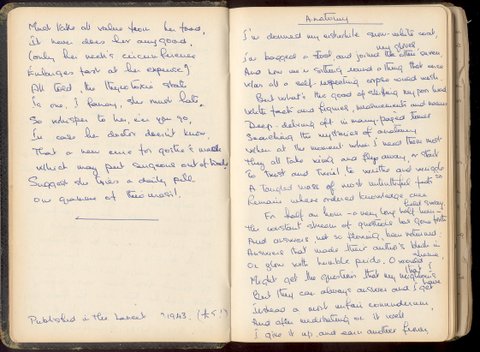 Most takes all value from her food,
It never does her any good,
(only her neck's circumference
Enlarges fast at her expense)
All told, the thyrotoxic state
Is one, I fancy, she must hate.
So whisper to her, ere you go,
In case her doctor doesn't know,
That a new cure for goitre's made
Which may put surgeons out of trade,
Suggest she tries a daily pill
One gramme of thiouracil!
Published in the Lancet ?1943. (£5!)
Anatomy
I've donned my erstwhile snow-white coat,
my gloves
I've bagged a stool and joined the other seven,
And now we're sitting round a thing that once
Was all a self-respecting corpse could wish.
But what's the good of stuffing my poor head
With facts and figures, measurements and names
Deep-delving oft in many-paged tomes
Searching the mysteries of anatomy
When at the moment when I need them most
They all take wing and fly away, or start
To twist and twirl to writhe and wriggle
A tangled mass of most untruthful facts so
Remain where ordered knowledge once
held sway.
For half an hour - a very long half hour -
The constant stream of questions has gone forth
And answers not so flowing, have returned:
Answers that made their author's blush in
shame,
Or glow with horrible pride. O would
that I
Might get the questions that my neighbours
have
But they can always answer and I get
Instead a most unfair conundrum,
And after meditating on it well
I give it up, and earn another frown